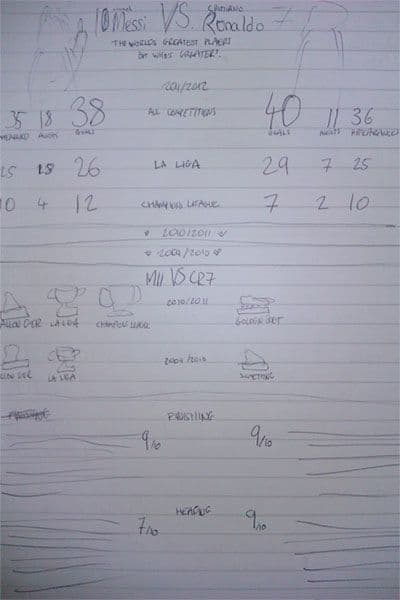 10 Messi VS. Ronaldo 7
CRISTIANO
THE WORLDS GREATEST PLAYERS
BUT WHO'S GREATER?
2011/2012
35 18 38 ALL COMPETITIONS 40 11 36
GOALS GOALS APPEARANCES
25 18 26 LA LIGA 29 7 25
10 4 12 CHAMPIONS LEAGUE 7 2 10
2010/2011
2009/2010
VS CR7
LA LIGA CHAMPIONS LEAGUE 2010/2011 GOLDEN BOOT
LA LIGA 2009/2010 SOMETHING
FINISHING
9/10 9/10
HEADING
7/10 9/10